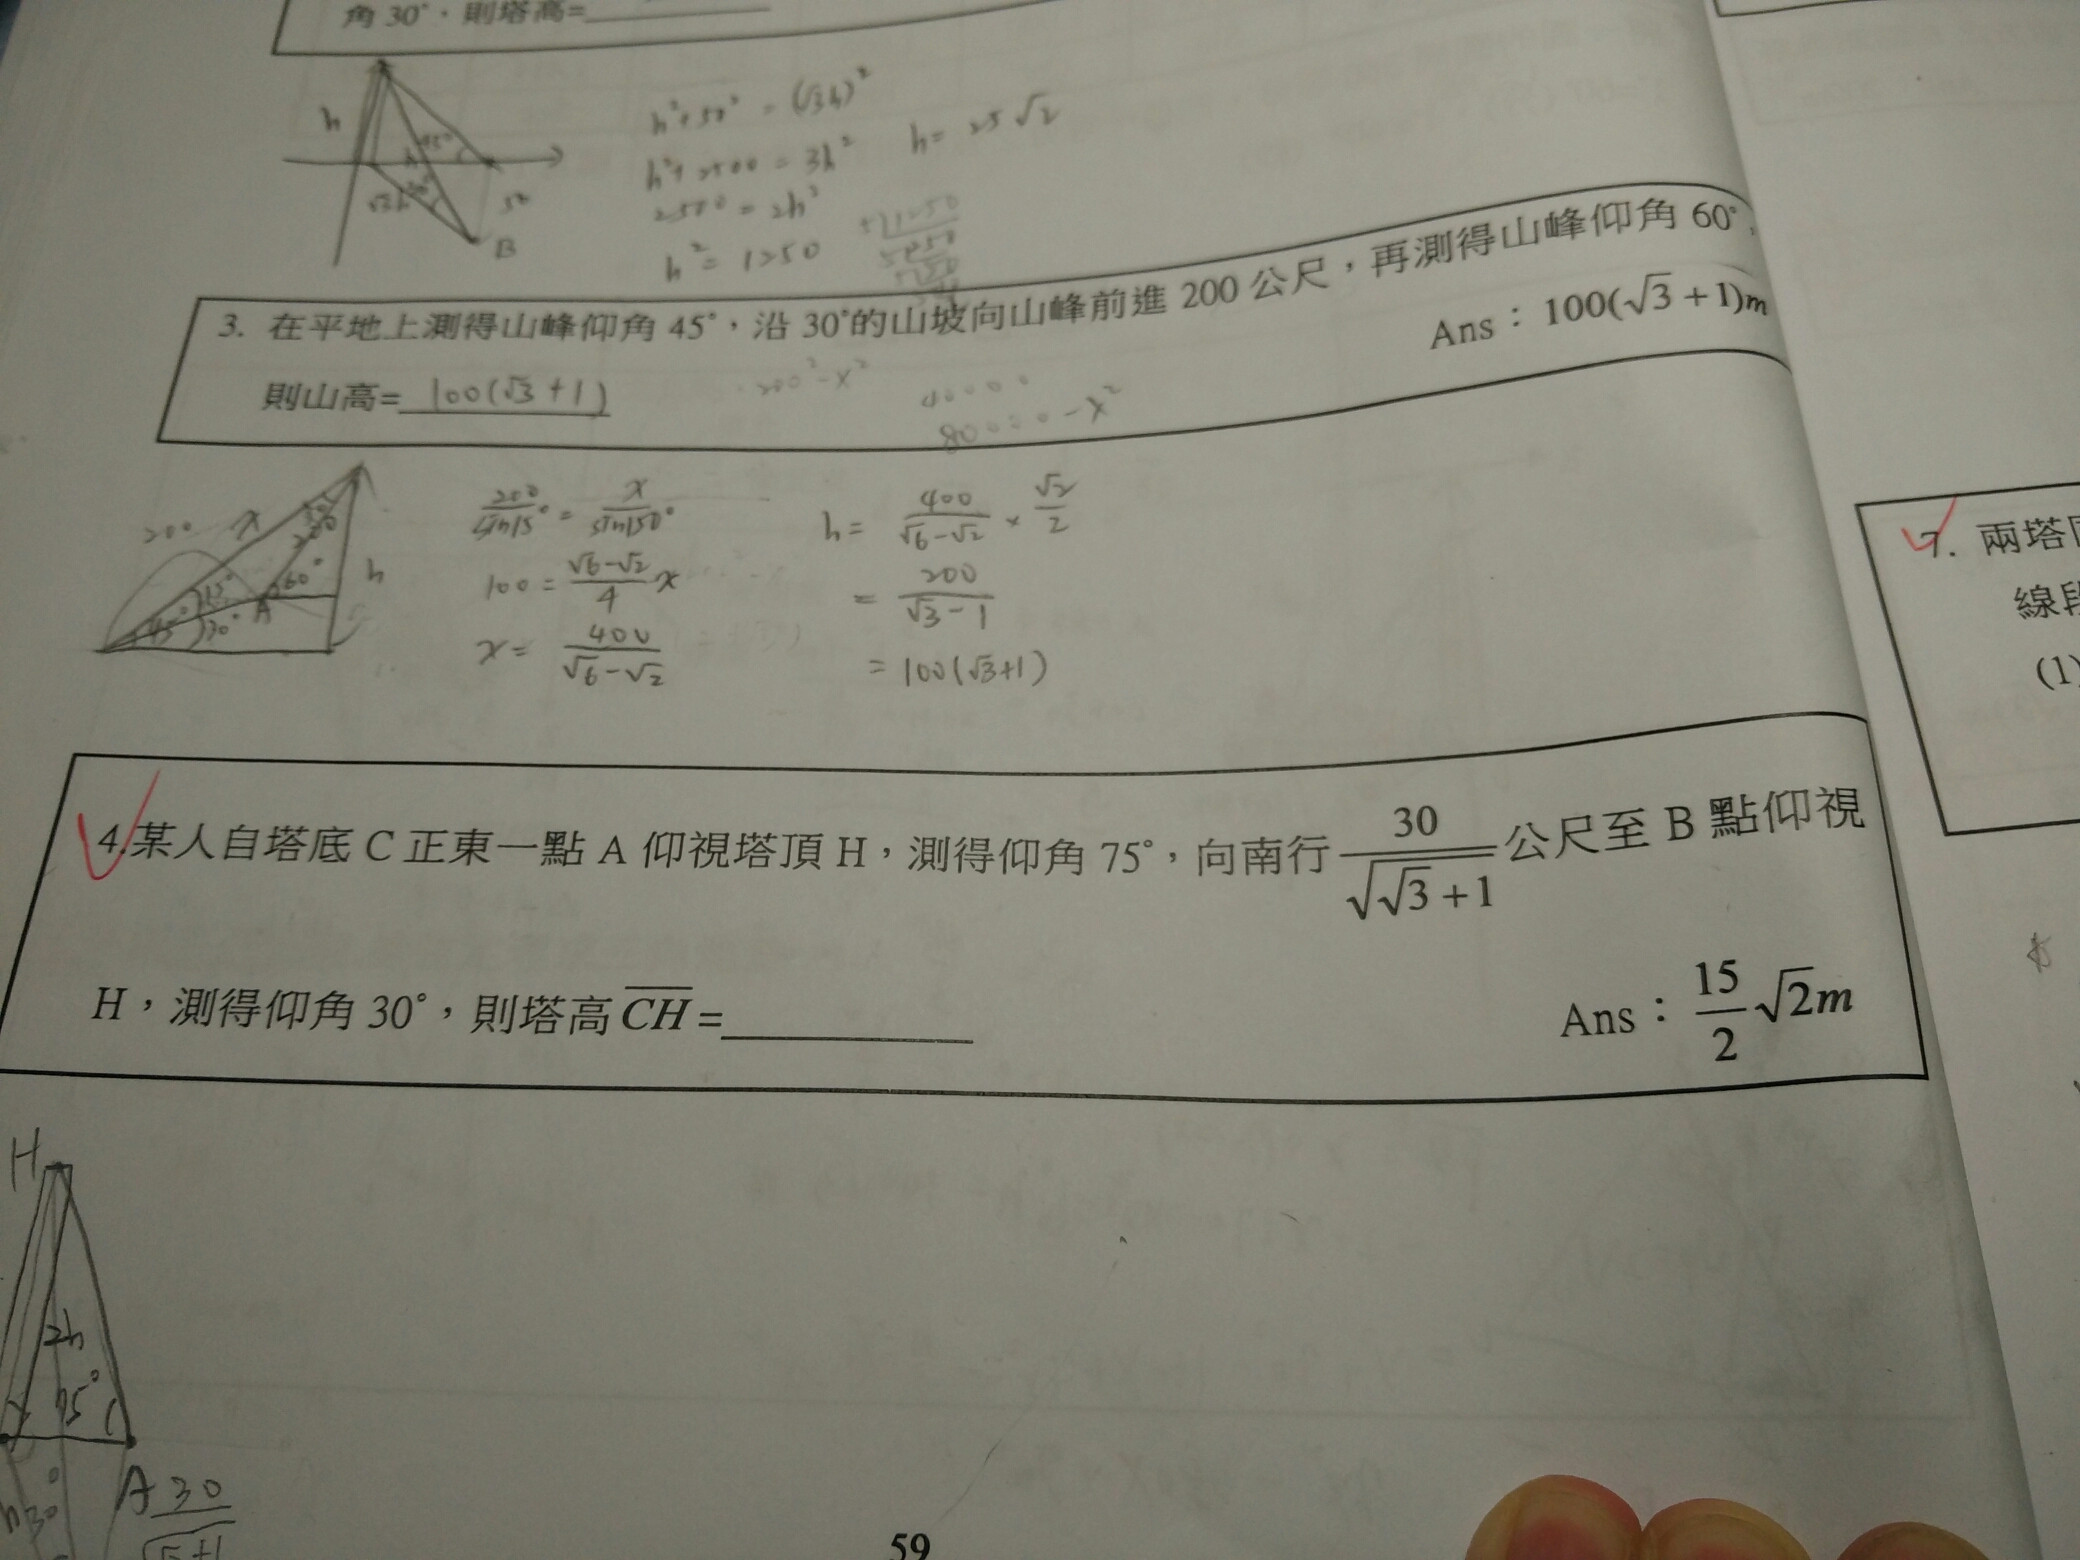 角30°，則塔高=
h
45°
h
√3h
30°
50
B
h²+50²=(√3h)²
h²+2500=3h²
2500=2h²
h²=1250
h=25√2
3. 在平地上測得山峰仰角45°，沿30°的山坡向山峰前進200公尺，再測得山峰仰角60°，
則山高=100(√3+1)
Ans：100(√3+1)m
200²-x²
40000
80000-x²
200
x
h
15°
60°
A
45°
30°
200/sin15°=x/sin150°
100=(√6-√2)/4 x
x=400/(√6-√2)
h=400/(√6-√2)×√2/2
=200/(√3-1)
=100(√3+1)
4.某人自塔底C正東一點A仰視塔頂H，測得仰角75°，向南行30/√(√3+1)公尺至B點仰視
H，測得仰角30°，則塔高CH=
Ans：15/2√2m
H
2h
75°
A
30
59
7. 兩塔
線段
(1)